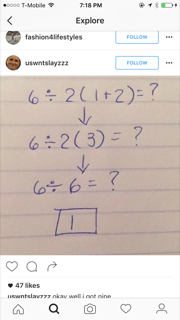 T-Mobile 7:18 PM
Explore
fashion4lifestyles FOLLOW
uswntslayzzz FOLLOW
6 ÷ 2(1+2)=?
6÷2(3) = ?
6÷6 = ?
1
47 likes
uswntslayzzz okay well i got nine